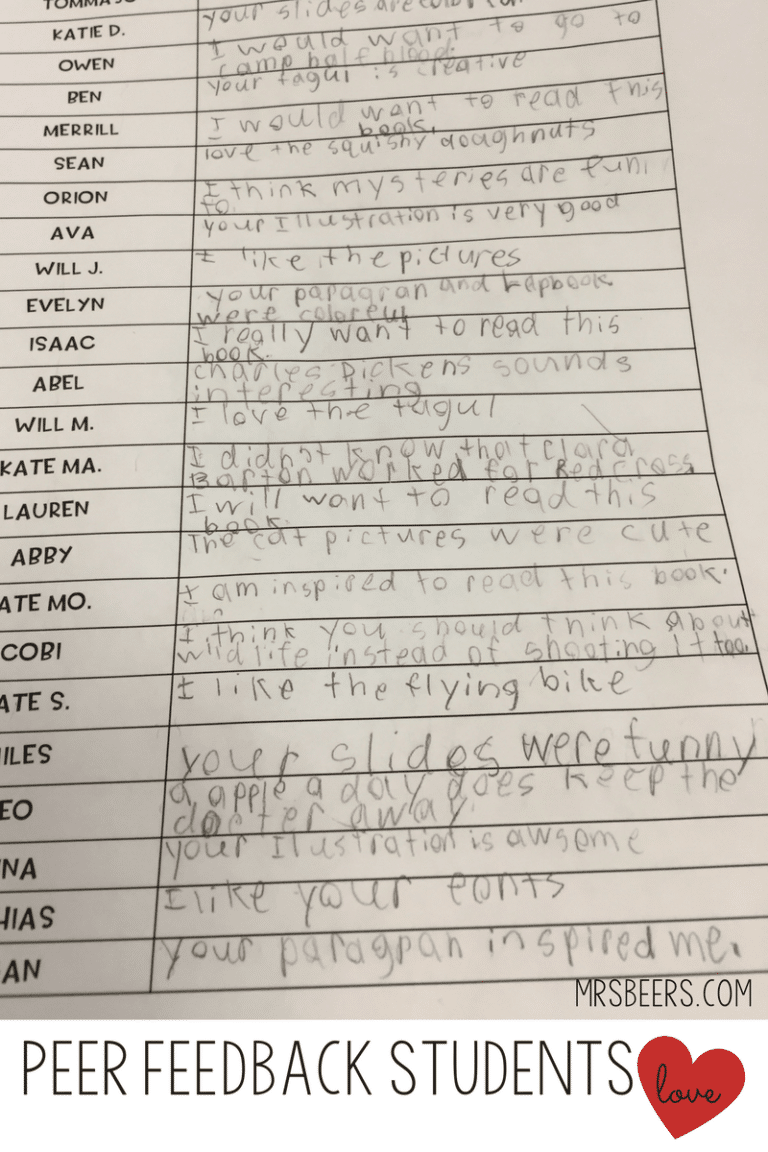 KATIE D. your slides are
OWEN I would want to go to
camp half blood.
BEN your tagul is creative
MERRILL I would want to read this
book.
SEAN love the squishy doughnuts
ORION I think mysteries are fun
to.
AVA your Illustration is very good
WILL J. I like the pictures
EVELYN your paragrah and lapbook
were
ISAAC I really want to read this
book.
ABEL charles Dickens sounds
interesting
WILL M. I love the tagul
KATE MA. I didn't know that clara
Barton worked for Redcross
LAUREN I will want to read this
book.
ABBY The cat pictures were cute
ATE MO. I am inspired to read this book.
COBI I think you should think about
wildlife instead of shooting it too.
ATE S. I like the flying bike
ILES your slides were funny
EO a apple a day does keep the
docter away.
NA your Ilustration is awsome
HIAS I like your fonts
AN your paragrah inspired me.
MRSBEERS.COM
PEER FEEDBACK STUDENTS love